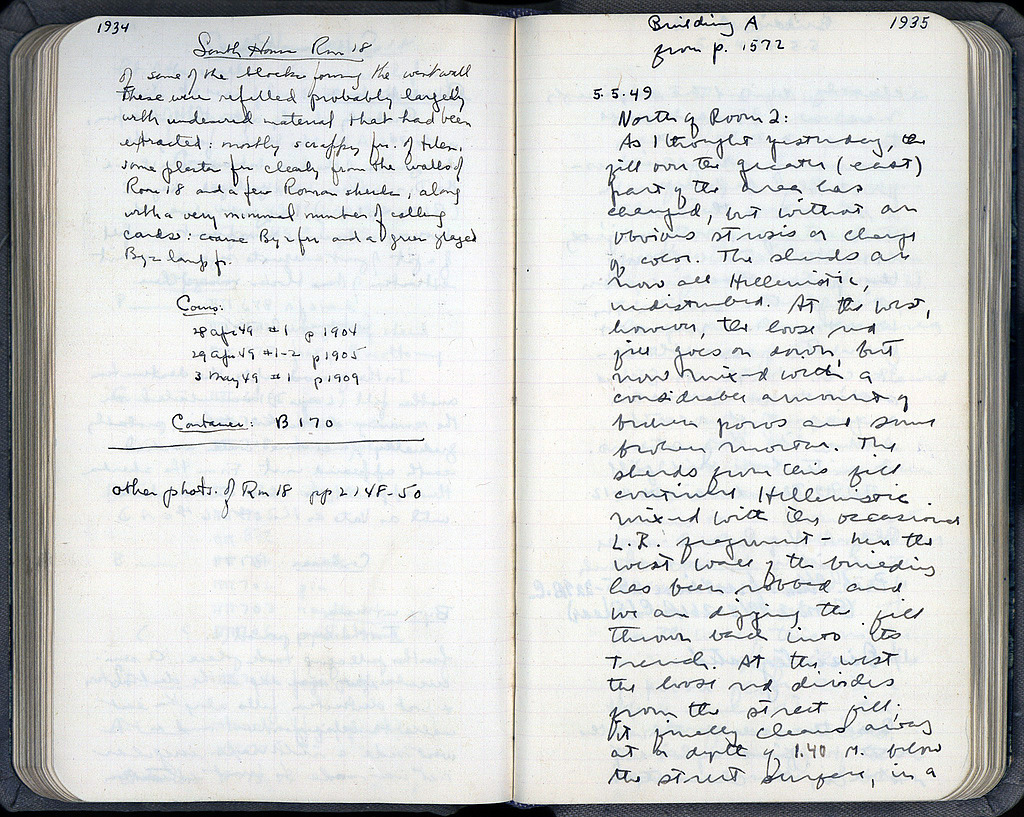 1934
South House Rm 18
of some of the blocks forming the west wall
These were refilled probably largely
with undisturbed material that had been
extracted: mostly scrappy frr. of Hellen.
some plaster frr clearly from the walls of
Rm 18 and a few Roman sherds, along
with a very minimal number of calling
cards: coarse Byz frr and a green glazed
Byz lamp fr.
Coins:
28 Apr 49 #1 p 1904
29 Apr 49 #1-2 p 1905
3 May 49 #1 p 1909
Container: B 170
other photos. of Rm 18 pp 2148-50
Building A
1935
from p. 1572
5.5.49
North of Room 2:
As I thought yesterday, the
fill over the greater (east)
part of the area has
changed, but without an
obvious strosis or change
of color. The sherds are
now all Hellenistic,
undisturbed. At the west,
however, the loose red
fill goes on down, but
now mixed with a
considerable amount of
broken poros and some
broken mortar. The
sherds from this fill
continue Hellenistic
mixed with the occasional
L.R. fragment - here the
west wall of the building
has been robbed and
we are digging the fill
thrown back into its
trench. At the west
the loose red divides
from the street fill.
It finally cleans away
at a depth of 1.40 m. below
the street surface, in a